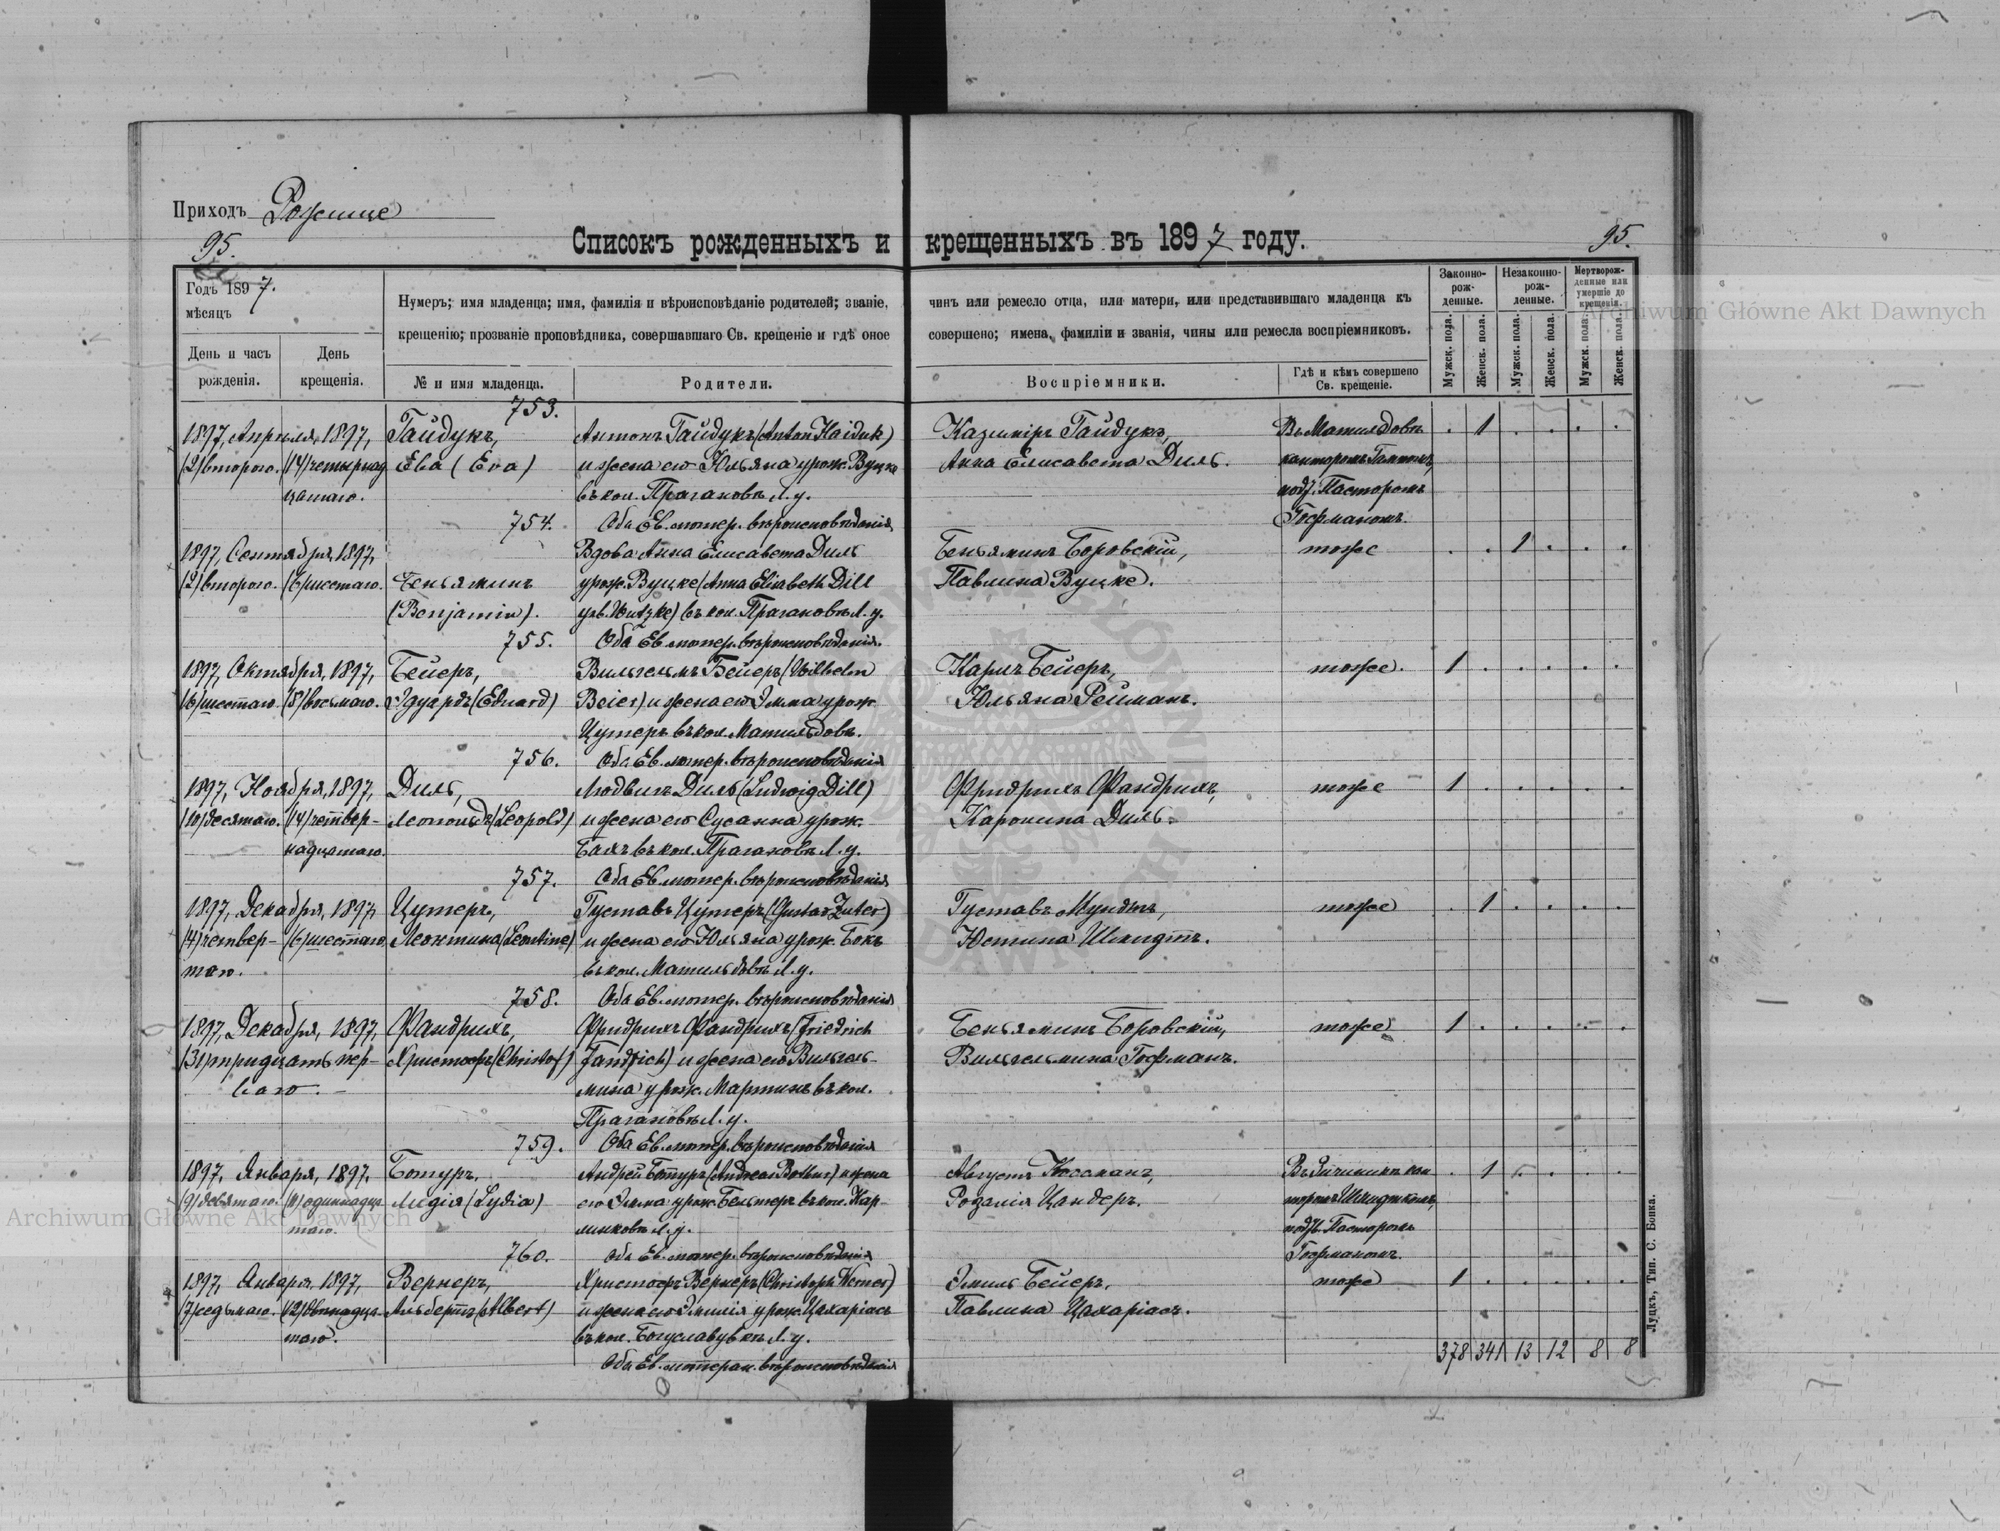 Приходъ Рожище
95.
Списокъ рожденныхъ и крещенныхъ въ 1897 году.
95.
Годъ 1897.
мѣсяцъ
День и часъ рожденія.
День крещенія.
Нумеръ; имя младенца; имя, фамилія и вѣроисповѣданіе родителей; званіе, чинъ или ремесло отца, или матери, или представившаго младенца къ
крещенію; прозваніе проповѣдника, совершавшаго Св. крещеніе и гдѣ оное совершено; имена, фамиліи и званія, чины или ремесла воспріемниковъ.
№ и имя младенца.
Родители.
Воспріемники.
Гдѣ и кѣмъ совершено Св. крещеніе.
Законно-рож-денные.
Незаконно-рож-денные.
Мертворож-денные или умершіе до крещенія.
Мужск. пола.
Женск. пола.
Мужск. пола.
Женск. пола.
Мужск. пола.
Женск. пола.
753.
1897, Апрѣля, 1897, Гайдукъ, Антонъ Гайдукъ (Anton Haiduk) Казимiръ Гайдукъ, Въ Матильдовѣ . 1 . . . .
(2) второго. (14) четырнад Ева (Eva) и жена его Юльяна урож. Вуцке Анна Елисавета Диль. канторомъ
цатаго. въ кол. Прагановѣ Л. у. подт. Пасторомъ
754. Оба Ев. лютер. вѣроисповѣданія Гофманомъ.
1897, Сентября, 1897, Вдова Анна Елисавета Диль Беньяминъ Боровскій, тоже . . 1 . . .
(2) второго. (6) шестаго. Беньяминъ урож. Вуцке (Anna Elisabeth Dill Павлина Вуцке.
(Benjamin). Wutzke) въ кол. Прагановѣ Л. у.
755. Оба Ев. лютер. вѣроисповѣданія.
1897, Октября, 1897, Бейеръ, Вильгельмъ Бейеръ (Wilhelm Карлъ Бейеръ, тоже. 1 . . . . .
(6) шестаго. (8) восьмаго. Эдуардъ (Eduard) Beier) и жена его Эмма урож. Юльяна Рейманъ.
Цутеръ въ кол. Матильдовѣ.
756. Оба Ев. лютер. вѣроисповѣданія
1897, Ноября, 1897, Диль, Людвигъ Диль (Ludwig Dill) Фридрихъ Фандрихъ, тоже 1 . . . . .
(10) десятаго. (14) четвер- Леопольдъ (Leopold) и жена его Сусанна урож. Каролина Диль.
надцатаго. въ кол. Прагановѣ Л. у.
757. Оба Ев. лютер. вѣроисповѣданія
1897, Декабря, 1897, Цутеръ, Густавъ Цутеръ (Gustav Zuter) Густавъ Мундтъ, тоже . 1 . . . .
(4) четвер- (6) шестаго. Леонтина (Leontine) и жена его Юльяна урож. Бокъ Юстина Шмидтъ.
таго. въ кол. Матильдовѣ Л. у.
758. Оба Ев. лютер. вѣроисповѣданія
1897, Декабря, 1897, Фандрихъ, Фридрихъ Фандрихъ (Friedrich Беньяминъ Боровскій, тоже 1 . . . . .
(31) тридцать пер- Христофъ (Christof) Fandrich) и жена его Вильгель- Вильгельмина Гофманъ.
ваго. мина урож. Мартинъ въ кол.
Прагановѣ Л. у.
759. Оба Ев. лютер. вѣроисповѣданія
1897, Января, 1897, Ботуръ, Андрей Ботуръ (Andreas Bottur) и жена Августъ Коссманъ, . 1 . . . .
(9) девятаго. (11) одиннадца- Лидія (Lydia) его Эмма урож. въ кол. Кар- Розалія Цандеръ. Шмидтке
таго. Л. у. подт. Пасторомъ
760. Оба Ев. лютер. вѣроисповѣданія Гофманомъ.
1897, Января, 1897, Вернеръ, Христофъ Вернеръ (Christoph Werner) Эмиль Бейеръ, тоже 1 . . . . .
(7) седьмаго. (12) двѣнадца- Альбертъ (Albert) и жена его Эмилія урож. Цахаріасъ Павлина Цахаріасъ.
таго. въ кол. Богуславувкѣ Л. у.
Оба Ев. лютеран. вѣроисповѣданія
378 341 13 12 8 8
Луцкъ, Тип. С. Бонка.
Archiwum Główne Akt Dawnych
Archiwum Główne Akt Dawnych